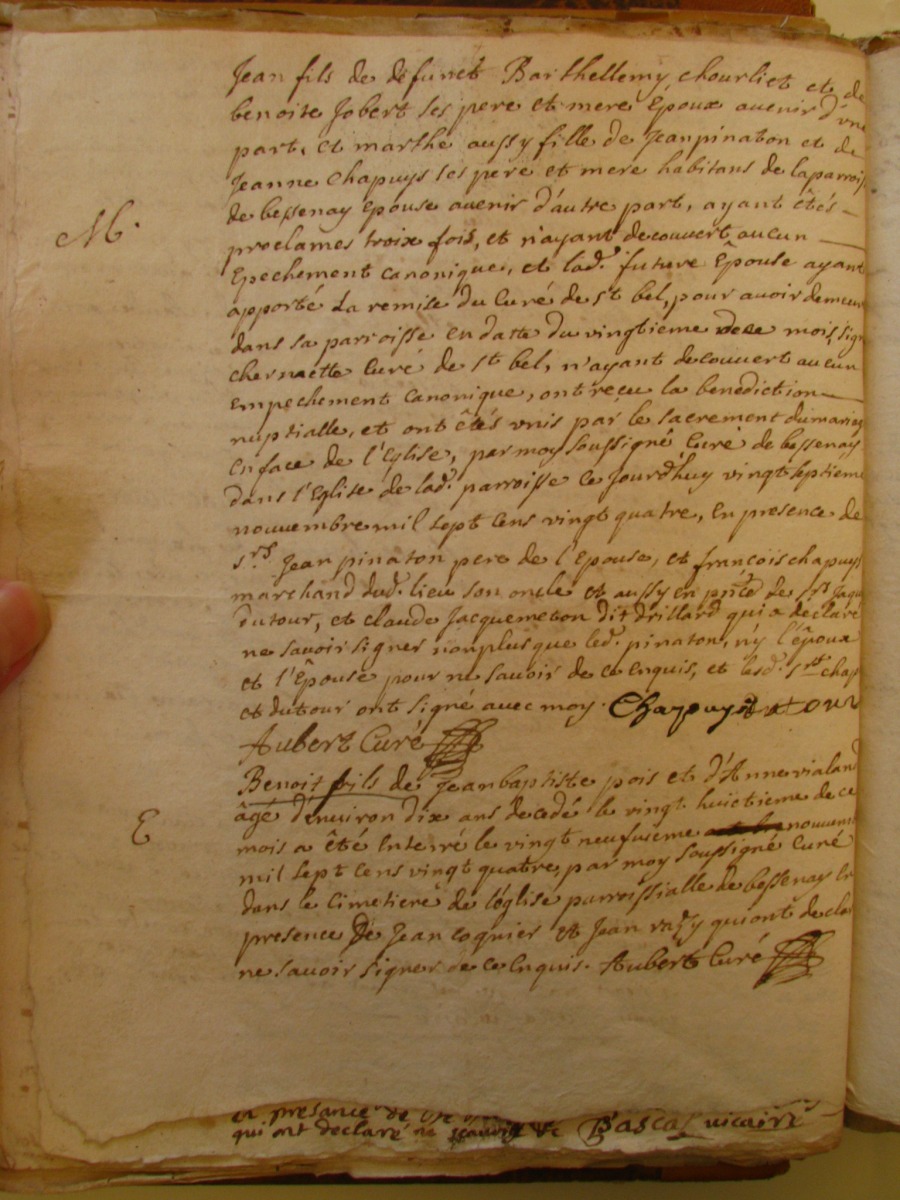 Jean fils de defunct Barthellemy chourliet et de
benoite Jobert ses pere et mere Époux avenir d'une
M. part, et marthe aussy fille de Jean pinaton et de
Jeanne Chapuys ses pere et mere habitans de la parrois
de bessenay Épouse avenir d'autre part, ayant êtés
proclames troix fois, et n'ayant decouvert aucun
Epechement canonique, et lad. future Épouse ayant
apporté La remise du Curé de st bel, pour avoir demeur
dans sa parroisse en datte du vingtieme mois, sign
chernaette Curé de St bel, n'ayant decouvert aucun
Empechement canonique, ont reçeu la benediction
nuptialle, et ont êtés unis par le sacrement du mariag
en face de l'Eglise, par moy soussigné Curé de bessenay
dans l'Eglise de lad. parroisse ce jourd'huy vingt septieme
nouvembre mil sept cens vingt quatre, En presence de
srs Jean pinaton pere de l'Epouse, et françois chapuys
marchand dud. lieu son oncle et aussy en pnce de sr Jaqu
dutour, et claude Jacquemeton dit drillard qui a declaré
ne savoir signer nonplus que led. pinaton, n'y l'époux
et l'Épouse pour ne savoir de ce Enquis, et lesd. srs chap
et dutour ont signé avec moy. Chapuys dutour
Aubert Curé
Benoit fils de Jean baptiste pois et d'Anne vialand
E âgé d'Environ dix ans decedé le vingt huictieme de ce
mois a été Enterré le vingt neufvieme nouvem
mil sept cens vingt quatre, par moy soussigné Curé
dans le Cimetiere de l'église parroissialle de bessenay En
presence De Jean coquier et Jean qui ont decla
ne savoir signer de ce Enquis. Aubert Curé
en presance de
qui ont declaré ne Pascal vicaire